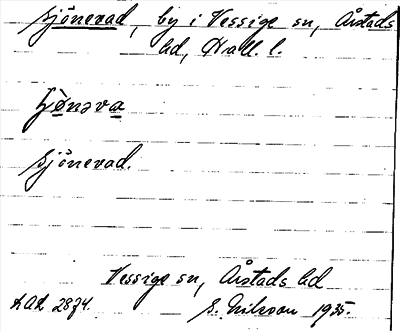 Sjönevad, by i Vessige sn, Årstads
hd, Hall. l.
Sjönevad.
Vessige sn, Årstads hd
AAL 2874. S. Nilsson 1935.